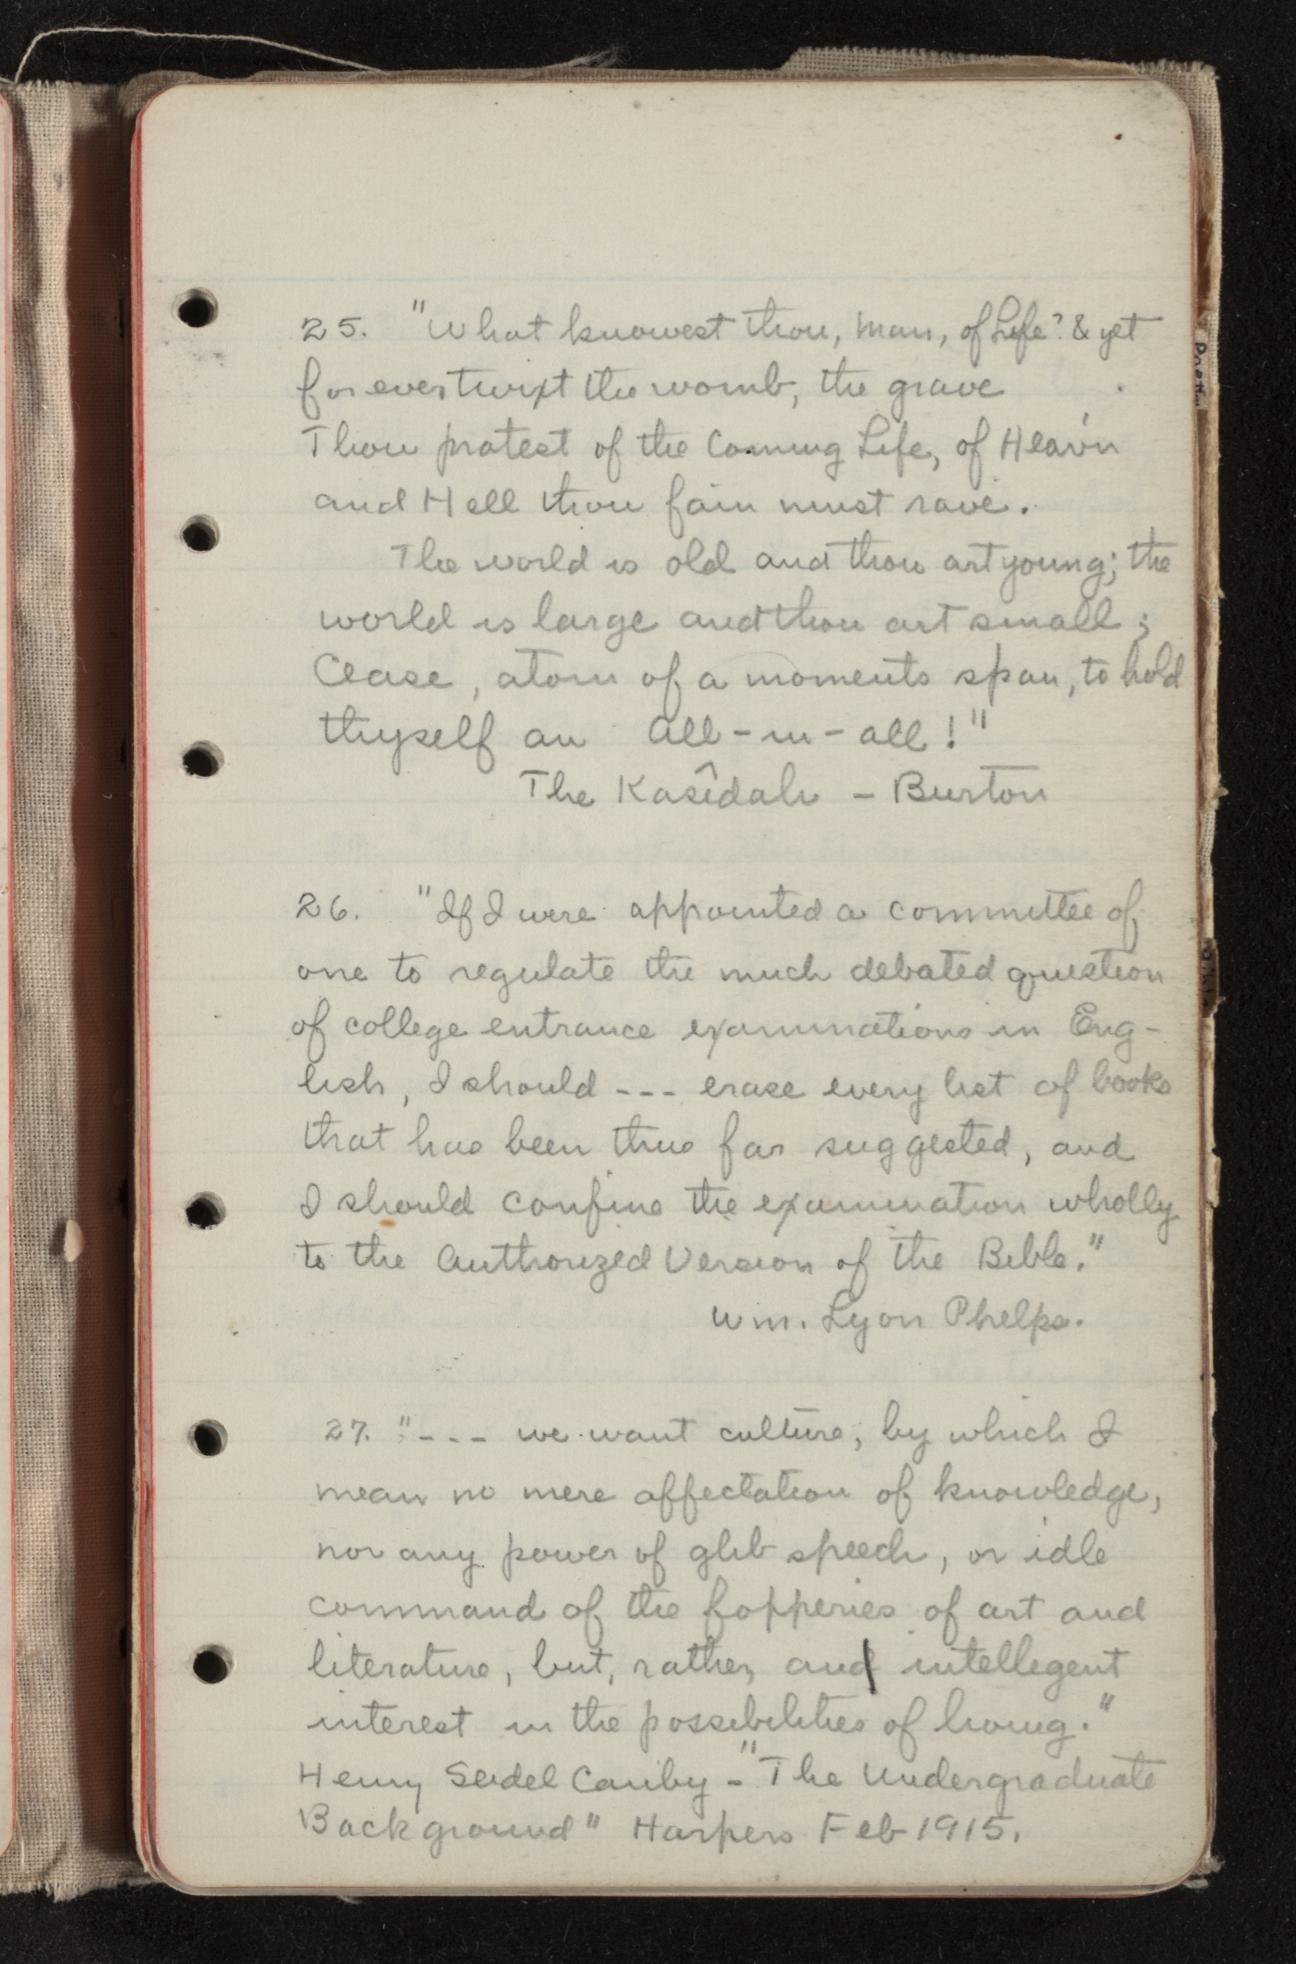 25. "What knowest thou, man, of Life? & yet
forever twixt the womb, the grave
Thou pratest of the Coming Life, of Heav'n
and Hell thou fain must rave.
The world is old and thou art young; the
world is large and thou art small;
Cease, atom of a moments span, to hold
thyself an all-in-all!"
The Kasîdah - Burton
26. "If I were appointed a committee of
one to regulate the much debated question
of college entrance examinations in Eng-
lish, I should --- erase every list of books
that has been thus far suggested, and
I should confine the examination wholly
to the Authorized Version of the Bible."
Wm. Lyon Phelps.
27. "--- we want culture, by which I
mean no mere affectation of knowledge,
nor any power of glib speech, or idle
command of the fopperies of art and
literature, but, rather, an intellegent
interest in the possibilities of living."
Henry Seidel Canby - "The Undergraduate
Background" Harpers Feb 1915.